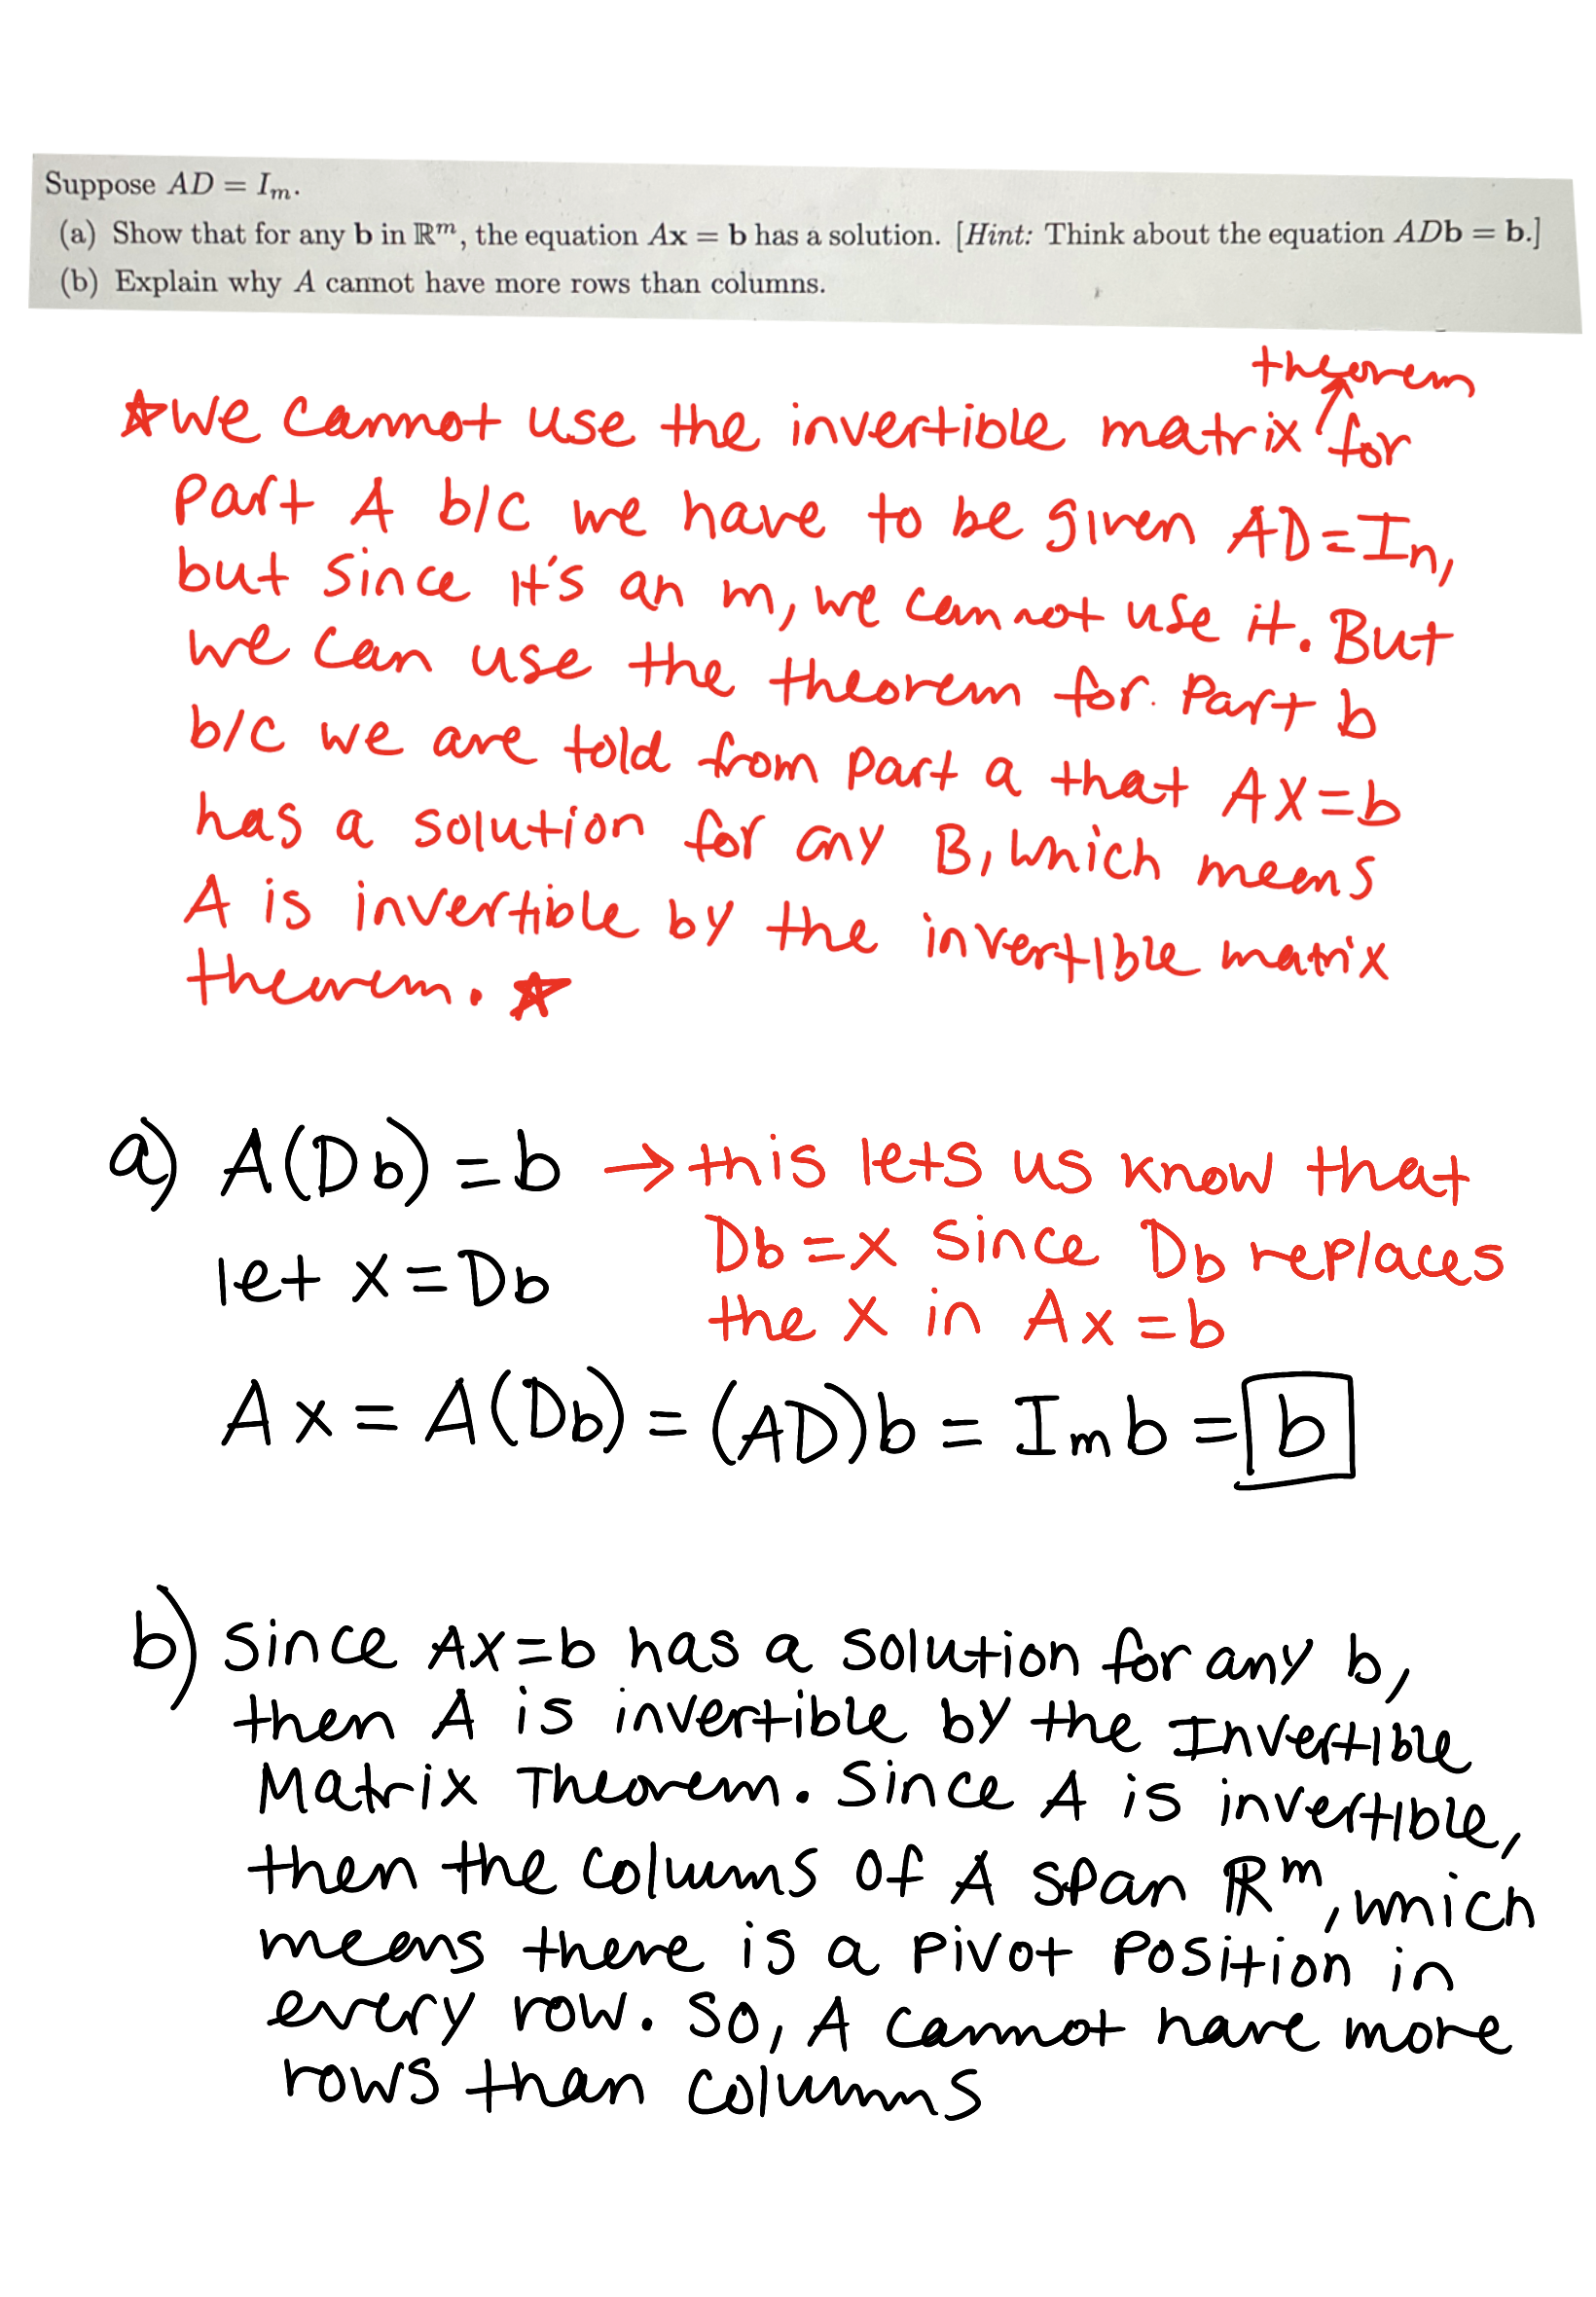 Suppose AD = Iₘ.
(a) Show that for any b in ℝᵐ, the equation Ax = b has a solution. [Hint: Think about the equation ADb = b.]
(b) Explain why A cannot have more rows than columns.
theorem
☆we cannot use the invertible matrix ↗ for
part A b/c we have to be given AD=In,
but since it's an m, we cannot use it. But
we can use the theorem for part b
b/c we are told from part a that AX=b
has a solution for any B, which means
A is invertible by the invertible matrix
theorem. ☆
a) A(Db) = b → this lets us know that
Db = x since Db replaces
let x = Db
the x in Ax = b
Ax = A(Db) = (AD)b = Imb = b
b) Since Ax=b has a solution for any b,
then A is invertible by the Invertible
Matrix Theorem. Since A is invertible,
then the columns of A span ℝᵐ, which
means there is a pivot position in
every row. So, A cannot have more
rows than columns